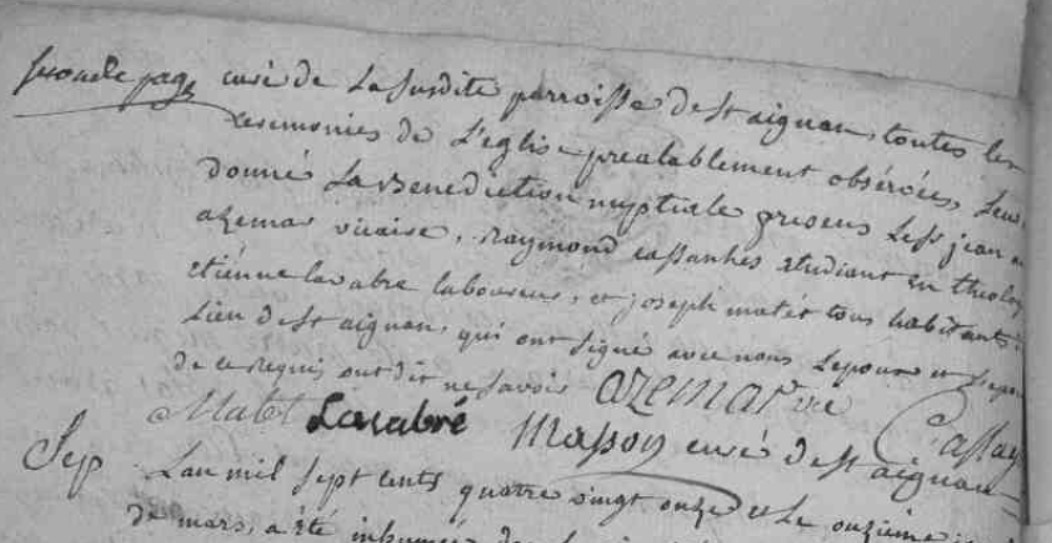 seconde page curé de La susdite parroisse de st aignan, toutes les
ceremonies de L'eglise prealablement observées, leur
donné La Benediction nuptiale presens Les srs jean
azemar vicaire, Raymond cassanhes etudiant en theolog
etiénne lavabre laboureur, et joseph matét tous habitants
Lieu de st aignan, qui ont signé avec nous Lepoux et Lepou
de ce requis ont dit ne savoir azemar vic
Matet Lavabré Masson curé de st aignan Cassan
Sep L'an mil sept cents quatre vingt onze et Le onziéme
de mars, a été inhumée